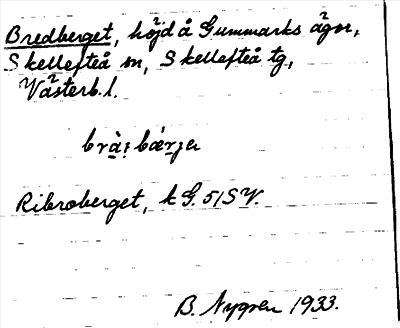 Bredberget, höjd å Gummarks ägor,
Skellefteå sn, Skellefteå tg,
Västerb.l.
Ribroberget, k G. 51 SV.
B. Nygren 1933.